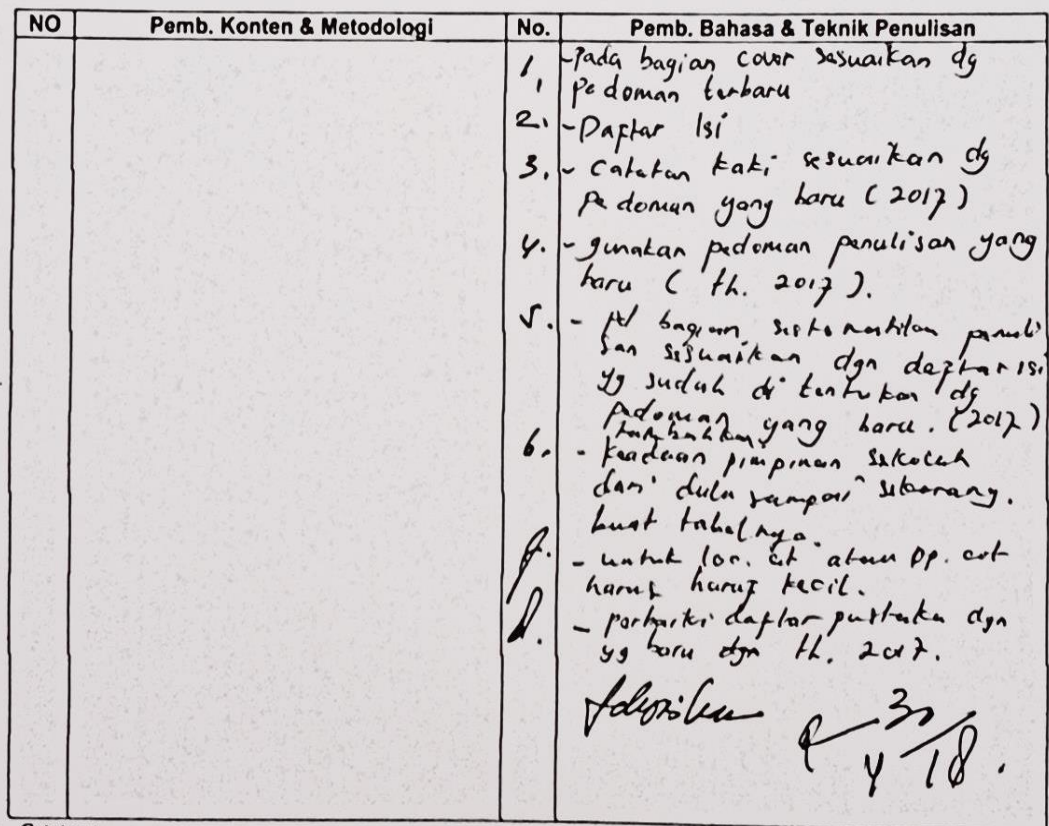 NO Pemb. Konten & Metodologi No. Pemb. Bahasa & Teknik Penulisan
1. - Pada bagian cover sesuaikan dg
pedoman terbaru
2. - Daftar Isi
3. - Catatan kaki sesuaikan dg
pedoman yang baru (2017)
4. - gunakan pedoman penulisan yang
baru (th. 2017).
5. - pd bagian sistematika penuli
san sesuaikan dgn daftar isi
yg sudah di tentukan dg
pedoman yang baru. (2017)
tambahkan
6. - keadaan pimpinan sekolah
dari dulu sampai sekarang.
buat tabelnya.
7. - untuk loc. cit atau op. cit
harus huruf kecil.
8. - perbaiki daftar pustaka dgn
yg baru dgn th. 2017.
30
4 18.